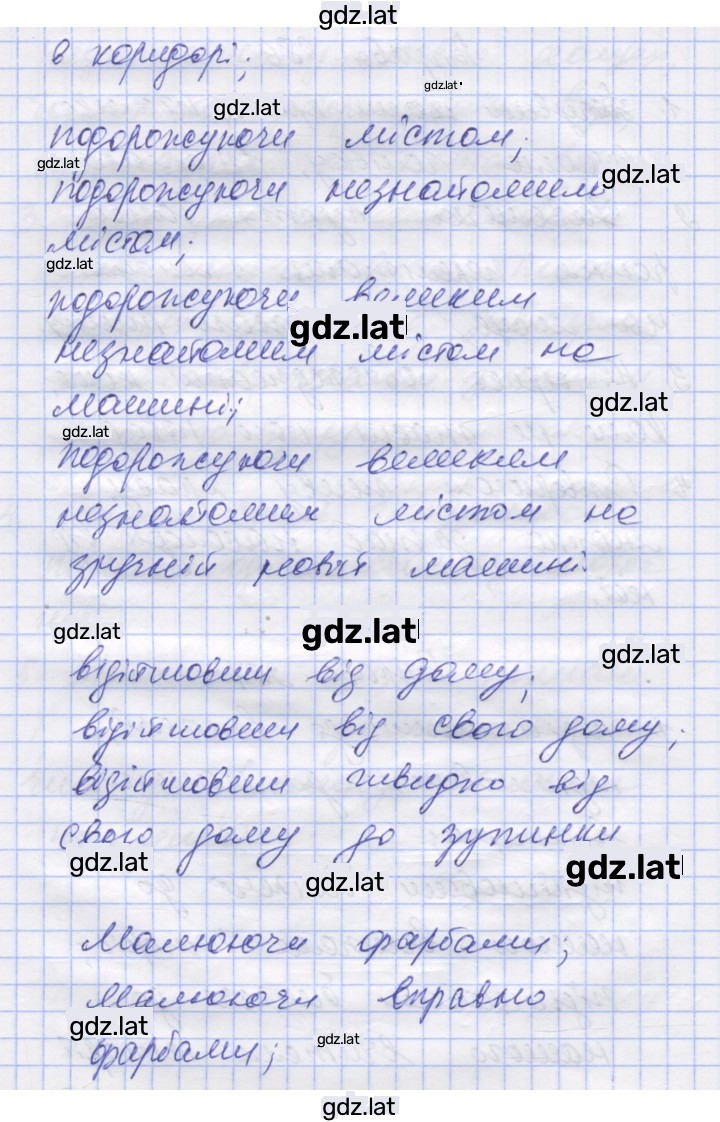 gdz.lat
в коридорі;
gdz.lat
gdz.lat
подорожуючи містом;
gdz.lat
подорожуючи незнайомим
gdz.lat
містом;
gdz.lat
подорожуючи великим
gdz.lat
незнайомим містом на
машині;
gdz.lat
gdz.lat
подорожуючи великим
незнайомим містом на
зручній новій машині.
gdz.lat
gdz.lat
gdz.lat
відійшовши від дому;
відійшовши від свого дому;
відійшовши швидко від
свого дому до зупинки
gdz.lat
gdz.lat
gdz.lat
Малюючи фарбами;
малюючи вправно
gdz.lat
фарбами;
gdz.lat
gdz.lat